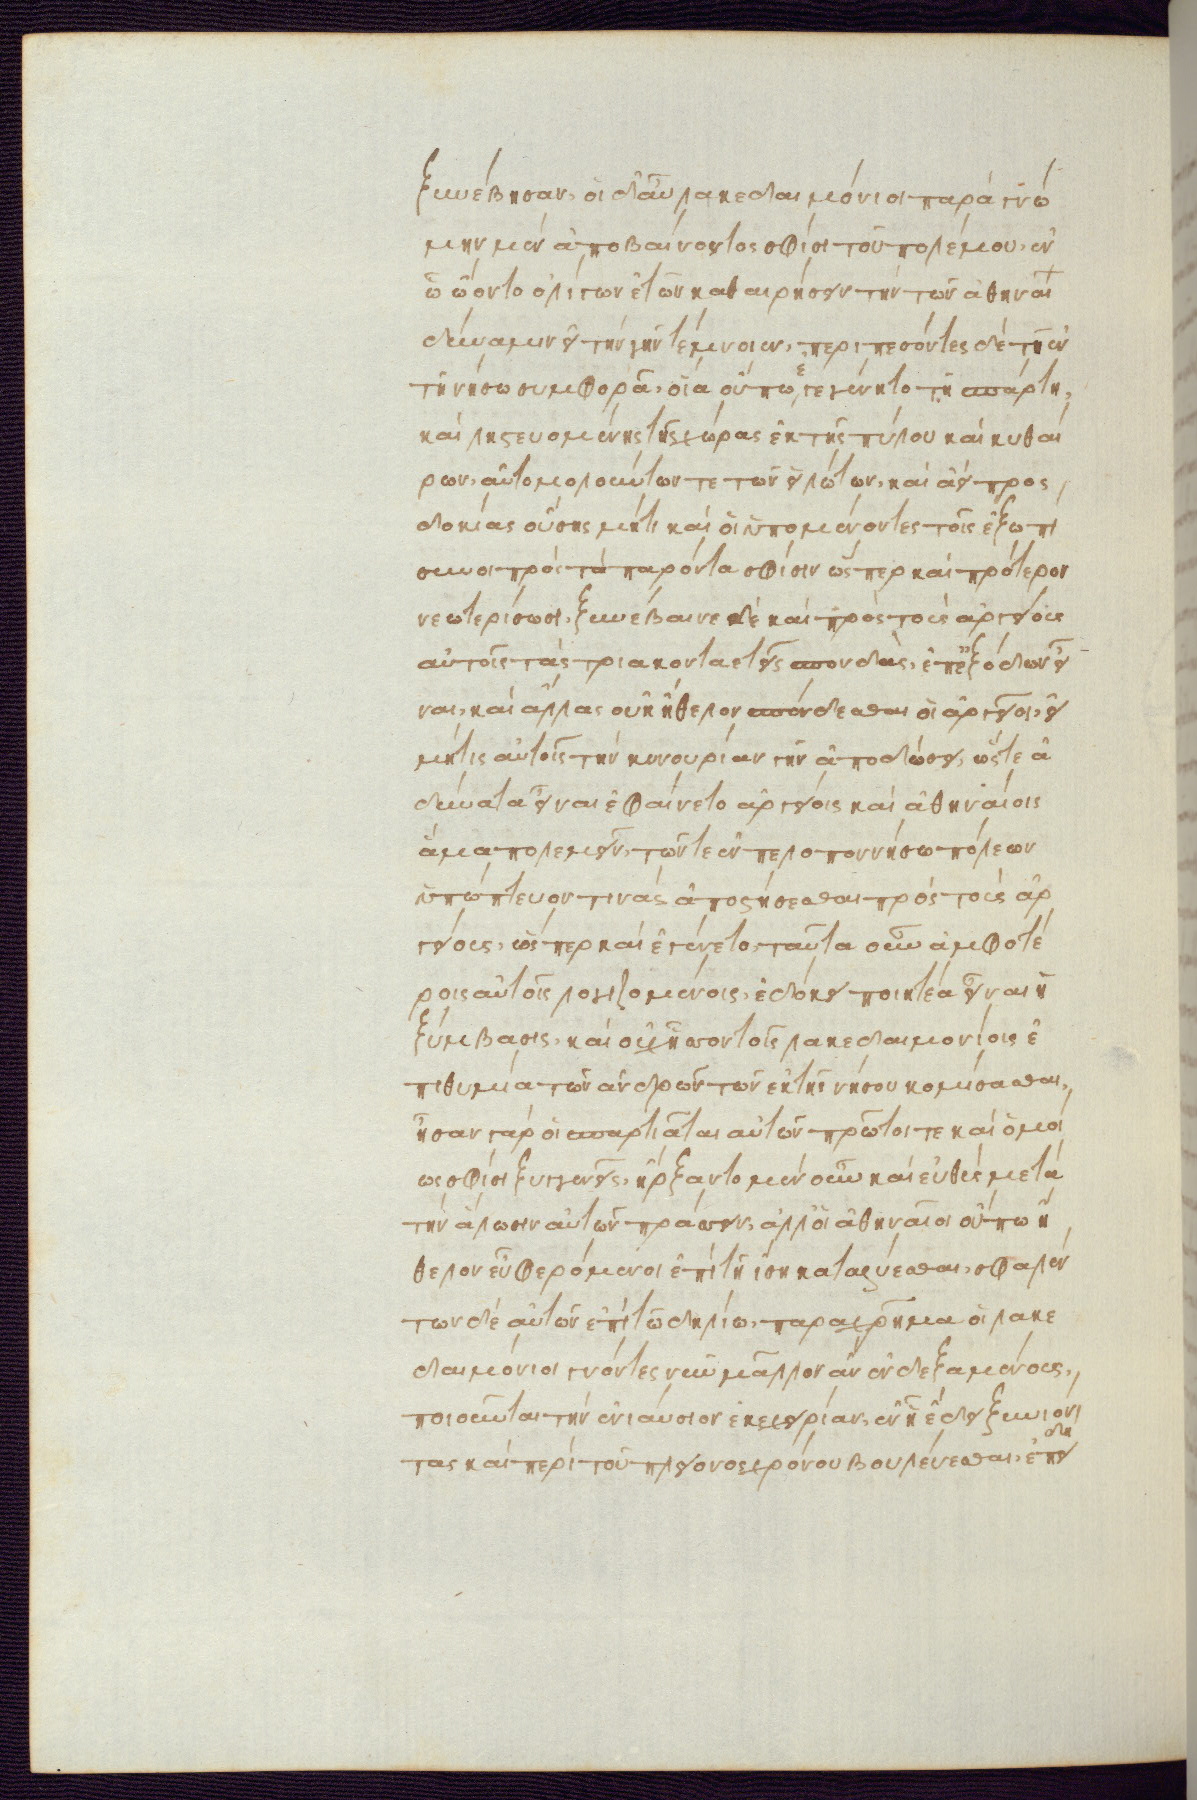 ξυνέβησαν, οἱ δ' αὖ λακεδαιμόνιοι παρὰ γνώ
μην μὲν ἀποβαίνοντος σφίσι τοῦ πολέμου, ἐν
ᾧ ᾤοντο ὀλίγων ἐτῶν καθαιρήσειν τὴν τῶν ἀθηναί
δύναμιν εἰ τὴν γῆν τέμνοιεν, περιπεσόντες δὲ τῇ ἐν
τῇ νήσω συμφορᾷ, οἵα οὔπω ἐγεγένητο τῇ σπάρτη,
καὶ λῃστευομένης τῆς χώρας ἐκ τῆς πύλου καὶ κυθαί
ρων, αὐτομολούντων τε τῶν εἱλώτων, καὶ ἀεὶ προς
δοκίας οὔσης μή τι καὶ οἱ ὑπομένοντες τοῖς ἔξω πί
συνοι πρὸς τὰ παρόντα σφίσιν ὥσπερ καὶ πρότερον
νεωτερίσωσι, ξυνέβαινε δὲ καὶ πρὸς τοὺς ἀργείους
αὐτοῖς τὰς τριακονταετεῖς σπονδὰς, ἐπ' ἐξόδων εἶ
ναι, καὶ ἄλλας οὐκ ἤθελον σπένδεσθαι οἱ ἀργεῖοι, εἰ
μή τις αὐτοῖς τὴν κυνουρίαν γῆν ἀποδώσει, ὥστε ἀ
δύνατα εἶναι ἐφαίνετο ἀργείοις καὶ ἀθηναίοις
ἅμα πολεμεῖν, τῶν τε ἐν πελοποννήσω πόλεων
ὑπώπτευον τινὰς ἀποστήσεσθαι πρὸς τοὺς ἀρ
γείους, ὥσπερ καὶ ἐγένετο, ταῦτα οὖν ἀμφοτέ
ροις αὐτοῖς λογιζομένοις, ἐδόκει ποιητέα εἶναι ἡ
ξύμβασις, καὶ οὐχ ἧσσον τοῖς λακεδαιμονίοις ἐ
πιθυμία τῶν ἀνδρῶν τῶν ἐκ τῆς νήσου κομίσασθαι,
ἦσαν γὰρ οἱ σπαρτιᾶται αὐτῶν πρῶτοι τε καὶ ὁμοί
ως σφίσι ξυγγενεῖς, ἤρξαντο μὲν οὖν καὶ εὐθὺς μετὰ
τὴν ἅλωσιν αὐτῶν πράσσειν, ἀλλ' οἱ ἀθηναῖοι οὔπω ἤ
θελον εὖ φερόμενοι ἐπὶ τῇ ἴσῃ καταλύεσθαι, σφαλέν
των δὲ αὐτῶν ἐπὶ τῷ δηλίω, παραχρῆμα οἱ λακε
δαιμόνιοι γνόντες νῦν μᾶλλον ἂν ἐνδεξαμένους,
ποιοῦνται τὴν ἐνιαύσιον ἐκεχειρίαν, ἐν ᾗ ἔδει ξυνιόν
τας καὶ περὶ τοῦ πλείονος χρόνου βουλεύεσθαι, ἐπειδὴ